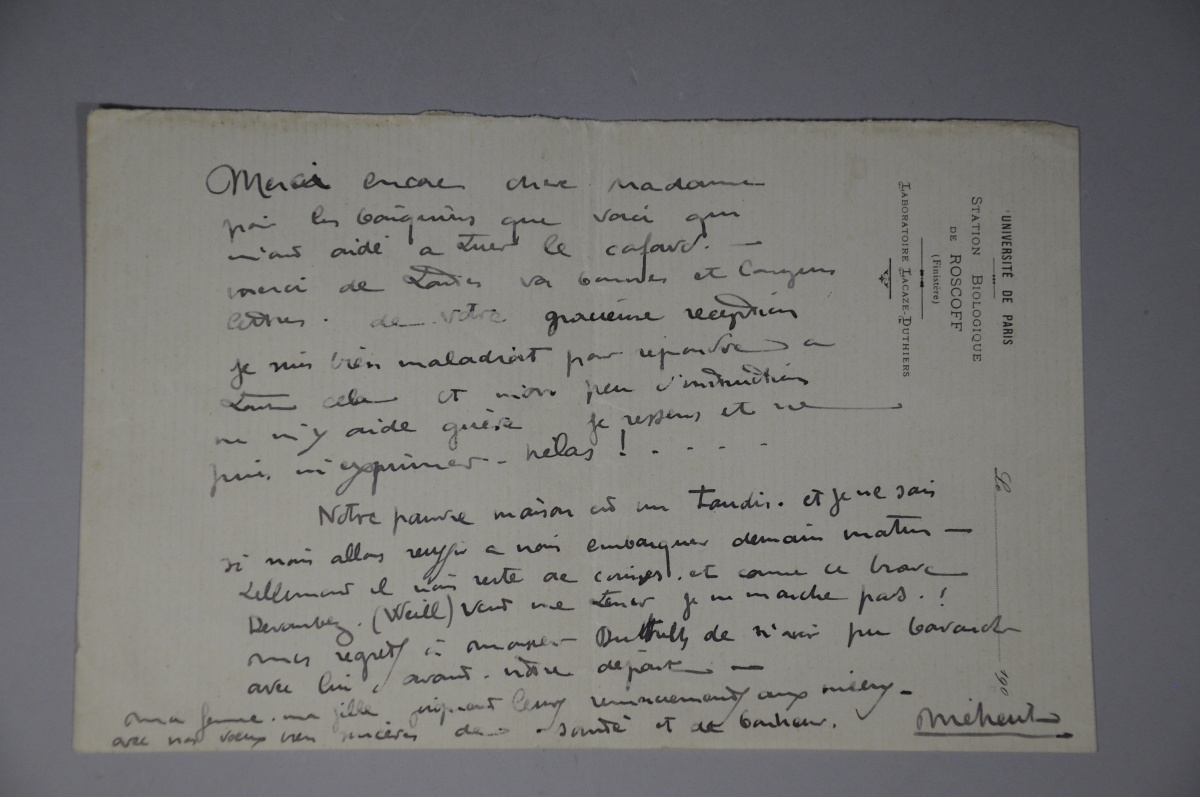 Merci encore chère madame
pour les bouquins que voici qui
m'ont aidé a tuer le cafard. —
merci de toutes vos bonnes et longues
lettres. de votre gracieuse reception
je suis bien maladroit pour repondre a
tout cela et mon peu d'instruction
ne m'y aide guère je ressens et ne
puis m'exprimer - hélas ! . . . .
Notre pauvre maison est un taudis. et je ne sais
si nous allons reussir a nous embarquer demain matin —
tellement il nous reste de courses. et comme ce brave
Devambez. (Weill) veut me tenir je ne marche pas. !
mes regrets à monsieur de n'avoir pu bavarder
avec lui, avant. notre départ —
ma femme. ma fille joignent leurs remerciements aux miens -
avec nos voeux bien sincères de santé et de bonheur.
Méheut
UNIVERSITÉ DE PARIS
STATION BIOLOGIQUE
DE ROSCOFF
(Finistère)
LABORATOIRE LACAZE-DUTHIERS
Le 190